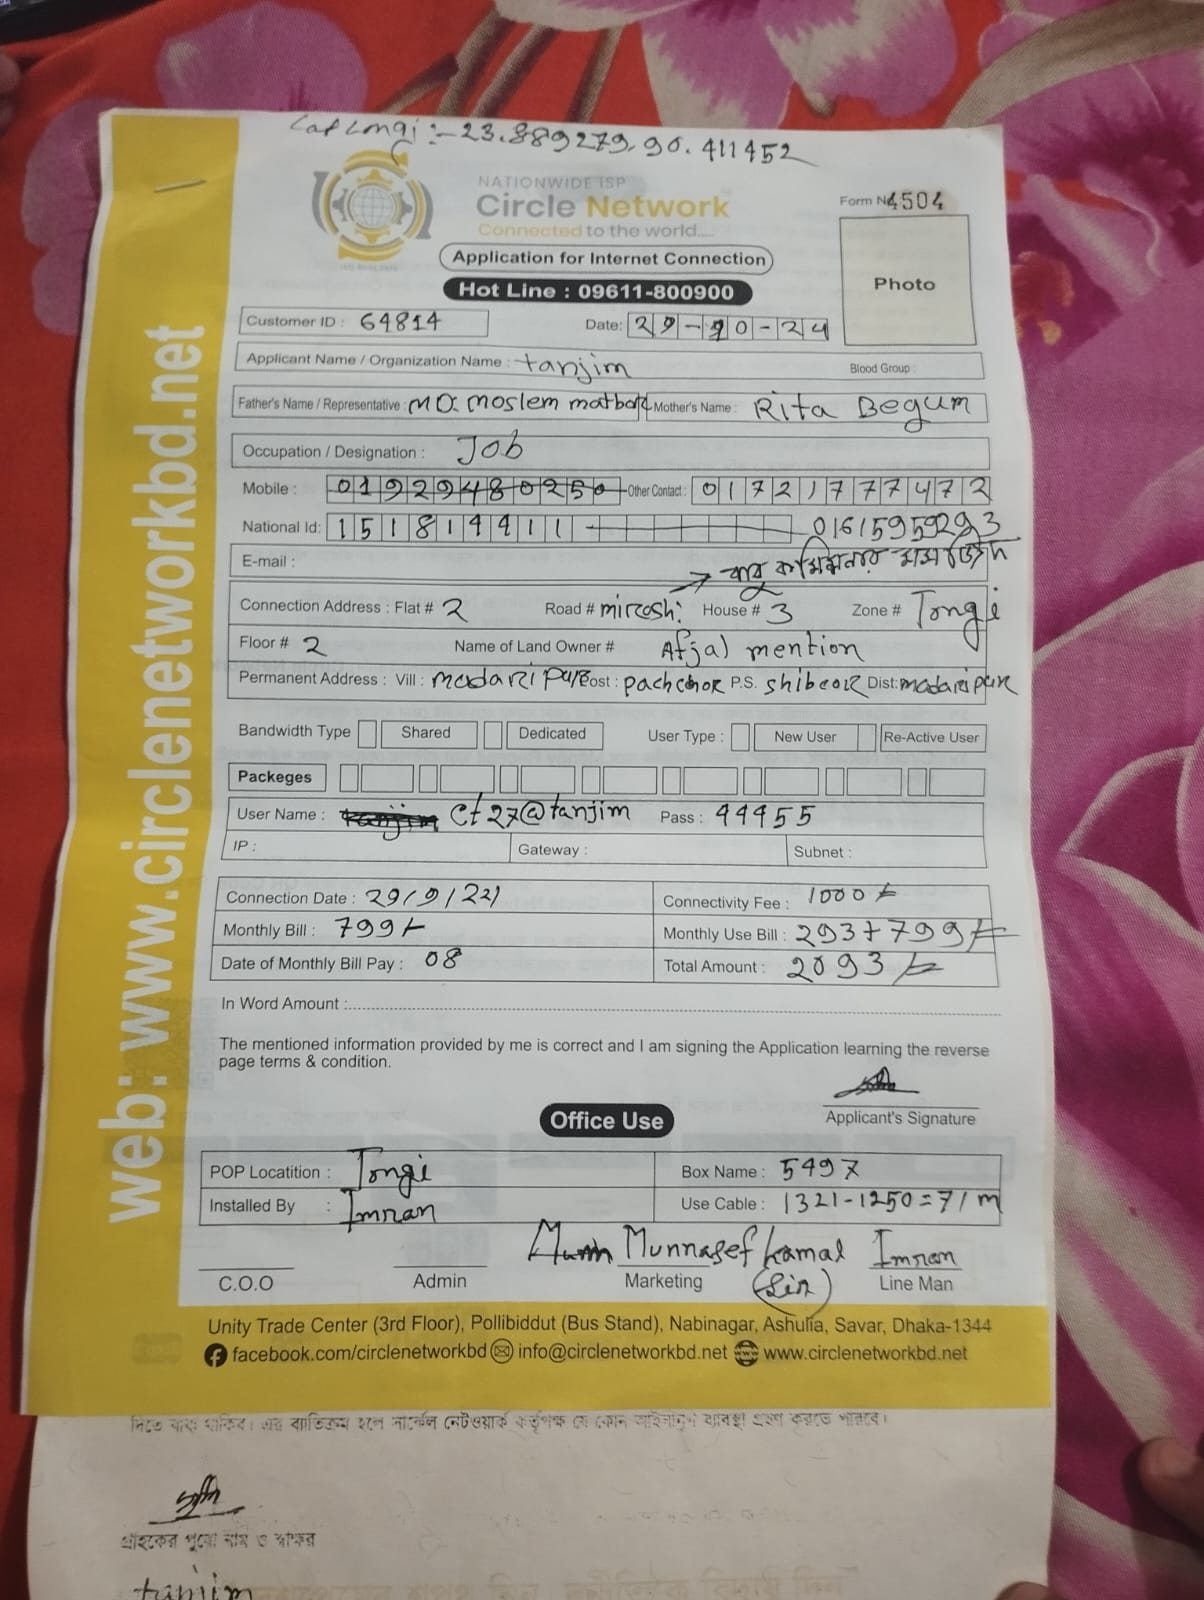 Lat Longi :- 23.889279, 90.411452
NATIONWIDE ISP
Circle Network
Connected to the world.....
Form No 4504
Application for Internet Connection
Photo
Hot Line : 09611-800900
Customer ID : 64814 Date: 29-10-24
Applicant Name / Organization Name : tanjim Blood Group :
Father's Name / Representative : MD. moslem matbor Mother's Name : Rita Begum
Occupation / Designation : Job
Mobile : 01929480250 Other Contact : 01721777472
National Id: 1518144911 01615959293
E-mail :
Connection Address : Flat # 2 Road # mircoshi House # 3 Zone # Tongi
Floor # 2 Name of Land Owner # Afjal mention
Permanent Address : Vill : madaripur Post : pachchor P.S. shibcor Dist: madaripur
Bandwidth Type Shared Dedicated User Type : New User Re-Active User
Packeges
User Name : tanjim ct27@tanjim Pass : 44455
IP : Gateway : Subnet :
Connection Date : 29/9/24 Connectivity Fee : 1000/-
Monthly Bill : 799/- Monthly Use Bill : 293+799/-
Date of Monthly Bill Pay : 08 Total Amount : 2093/-
In Word Amount :
The mentioned information provided by me is correct and I am signing the Application learning the reverse
page terms & condition.
Applicant's Signature
Office Use
POP Locatition : Tongi Box Name : 5497
Installed By : Imran Use Cable : 1321-1250=71m
Munnasef kamal Imran
C.O.O Admin Marketing (Sir) Line Man
Unity Trade Center (3rd Floor), Pollibiddut (Bus Stand), Nabinagar, Ashulia, Savar, Dhaka-1344
facebook.com/circlenetworkbd info@circlenetworkbd.net www.circlenetworkbd.net
web: www.circlenetworkbd.net
দিতে বাধ্য থাকিব। এর ব্যতিক্রম হলে সার্কেল নেটওয়ার্ক কর্তৃপক্ষ যে কোন আইনানুগ ব্যবস্থা গ্রহণ করতে পারবে।
গ্রাহকের পুরো নাম ও স্বাক্ষর
tanjim